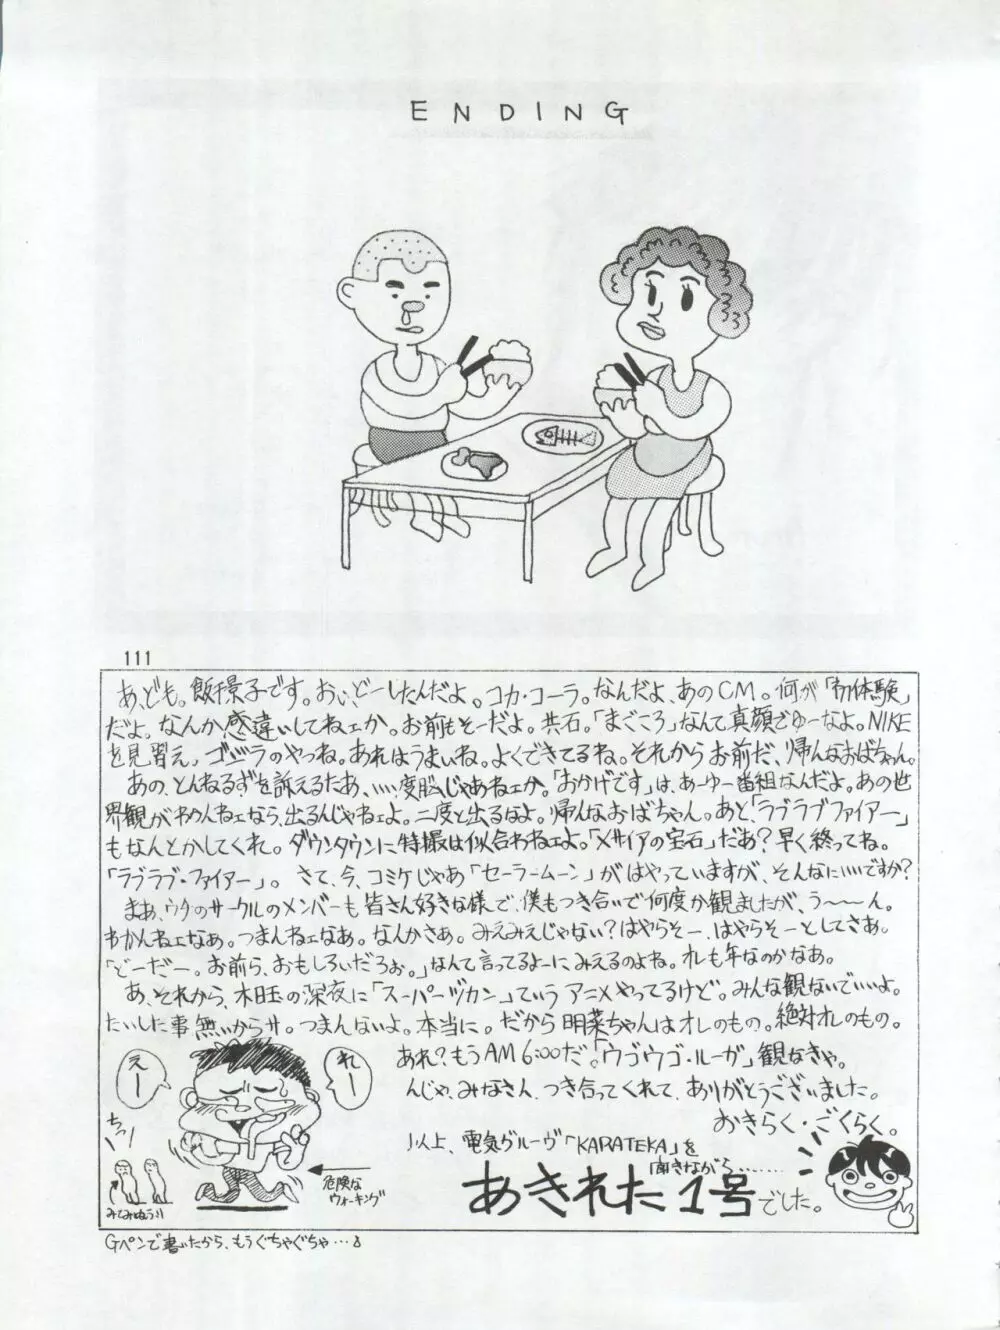 ENDING
111
あ、ども。飯干景子です。おい、どーしたんだよ。コカ・コーラ。なんだよ、あのCM。何が「初体験」
だよ。なんか感違いしてねェか。お前もそーだよ。共石。「まごころ」なんて真顔でゆーなよ。NIKE
を見習え。ゴジラのやつね。あれはうまいね。よくできてるね。それからお前だ、帰んなおばちゃん。
あの、とんねるずを訴えるたあ、いい度胸じゃあねェか。「おかげです」は、あーゆー番組なんだよ。あの世
界観がわかんねェなら、出るんじゃねェよ。二度と出るなよ。帰んなおばちゃん。あと「ラブラブファイアー」
もなんとかしてくれ。ダウンタウンに特撮は似合わねェよ。「メサイアの宝石」だあ？早く終ってね。
「ラブラブ・ファイアー」。さて、今、コミケじゃあ「セーラームーン」がはやっていますが、そんなにいいですか？
まあ、ウチのサークルのメンバーも皆さん好きな様で、僕もつき合いで何度か観ましたが、う〜〜ん。
わかんねェなあ。つまんねェなあ。なんかさあ。みえみえじゃない？はやらそー、はやらそーとしてさあ。
「どーだー。お前ら、おもしろいだろぉ。」なんて言ってるよーに、みえるのよね。オレも年なのかなあ。
あ、それから、木曜の深夜に「スーパーヅカン」ていう アニメやってるけど。みんな観ないでいいよ。
たいした事無いからサ。つまんないよ。本当に。だから明菜ちゃんはオレのもの。絶対オレのもの。
あれ？もうAM6:00だ。「ウゴウゴ・ルーガ」観なきゃ。
んじゃ、みなさん、つき合ってくれて、ありがとうございました。
おきらく・ごくらく。
以上、電気グルーヴ「KARATEKA」を
聞きながら………
あきれた1号でした。
えー
れー
ちっ
危険な
ウォーキング
Gペンで書いたから、もうぐちゃぐちゃ…